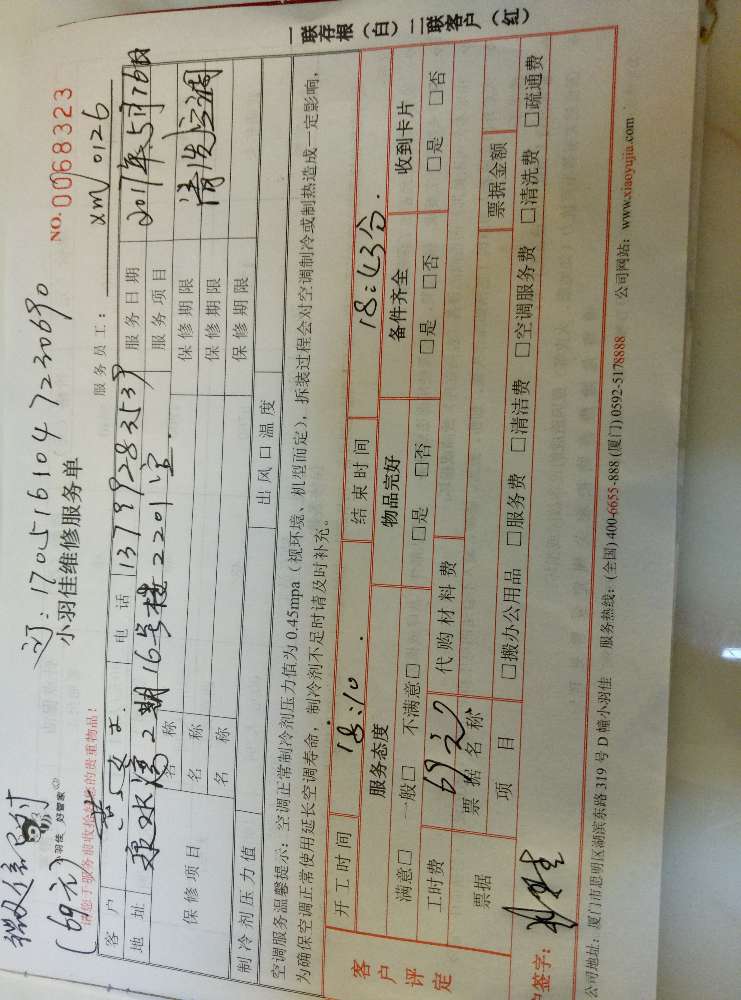 微信支付
(69元)
订:170516104 7230690
小羽佳 好管家
小羽佳维修服务单
NO.0068323
请您于服务前收拾好您的贵重物品!
服务员工: xm/0126
客户 女士 电话 13779283539 服务日期 2017年5月16日
地址 泉水湾2期16号楼2201室. 服务项目 清洗空调
保修项目 名称 保修期限
名称 保修期限
名称 保修期限
制冷剂压力值 出风口温度
空调服务温馨提示:空调正常制冷剂压力值为0.45mpa(视环境、机型而定),拆装过程会对空调制冷或制热造成一定影响,
为确保空调正常使用延长空调寿命,制冷剂不足时请及时补充。
开工时间 18:10. 结束时间 18:43分.
客户评定
服务态度 物品完好 备件齐全 收到卡片
满意□ 一般□ 不满意□ □是 □否 □是 □否 □是 □否
工时费 69元 代购材料费
票据 票据名称 票据金额
项目 □搬办公用品 □服务费 □清洁费 □空调服务费 □清洗费 □疏通费
户签字:
公司地址:厦门市思明区湖滨东路319号D幢小羽佳 服务热线:(全国)400-6655-888(厦门)0592-5178888 公司网站:www.xiaoyujia.com
一联存根(白)二联客户(红)